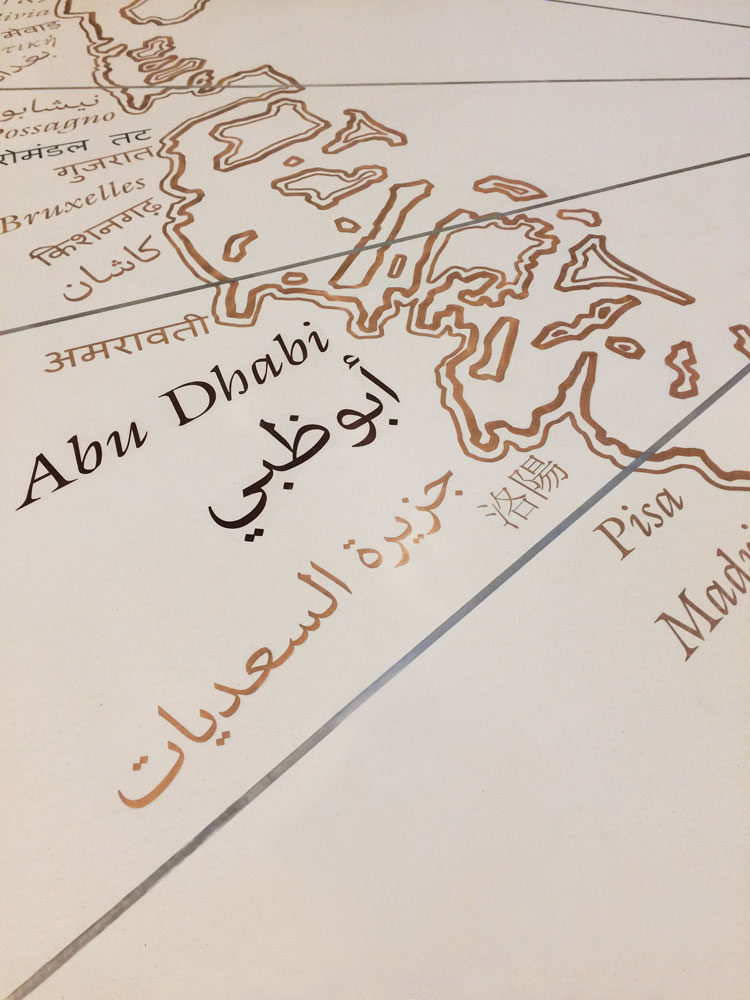 मेवाड़
نيشابو
Possagno
रोमंडल तट
गुजरात
Bruxelles
किशनगढ़
كاشان
अमरावती
Abu Dhabi
أبوظبي
جزيرة السعديات
洛陽
Pisa